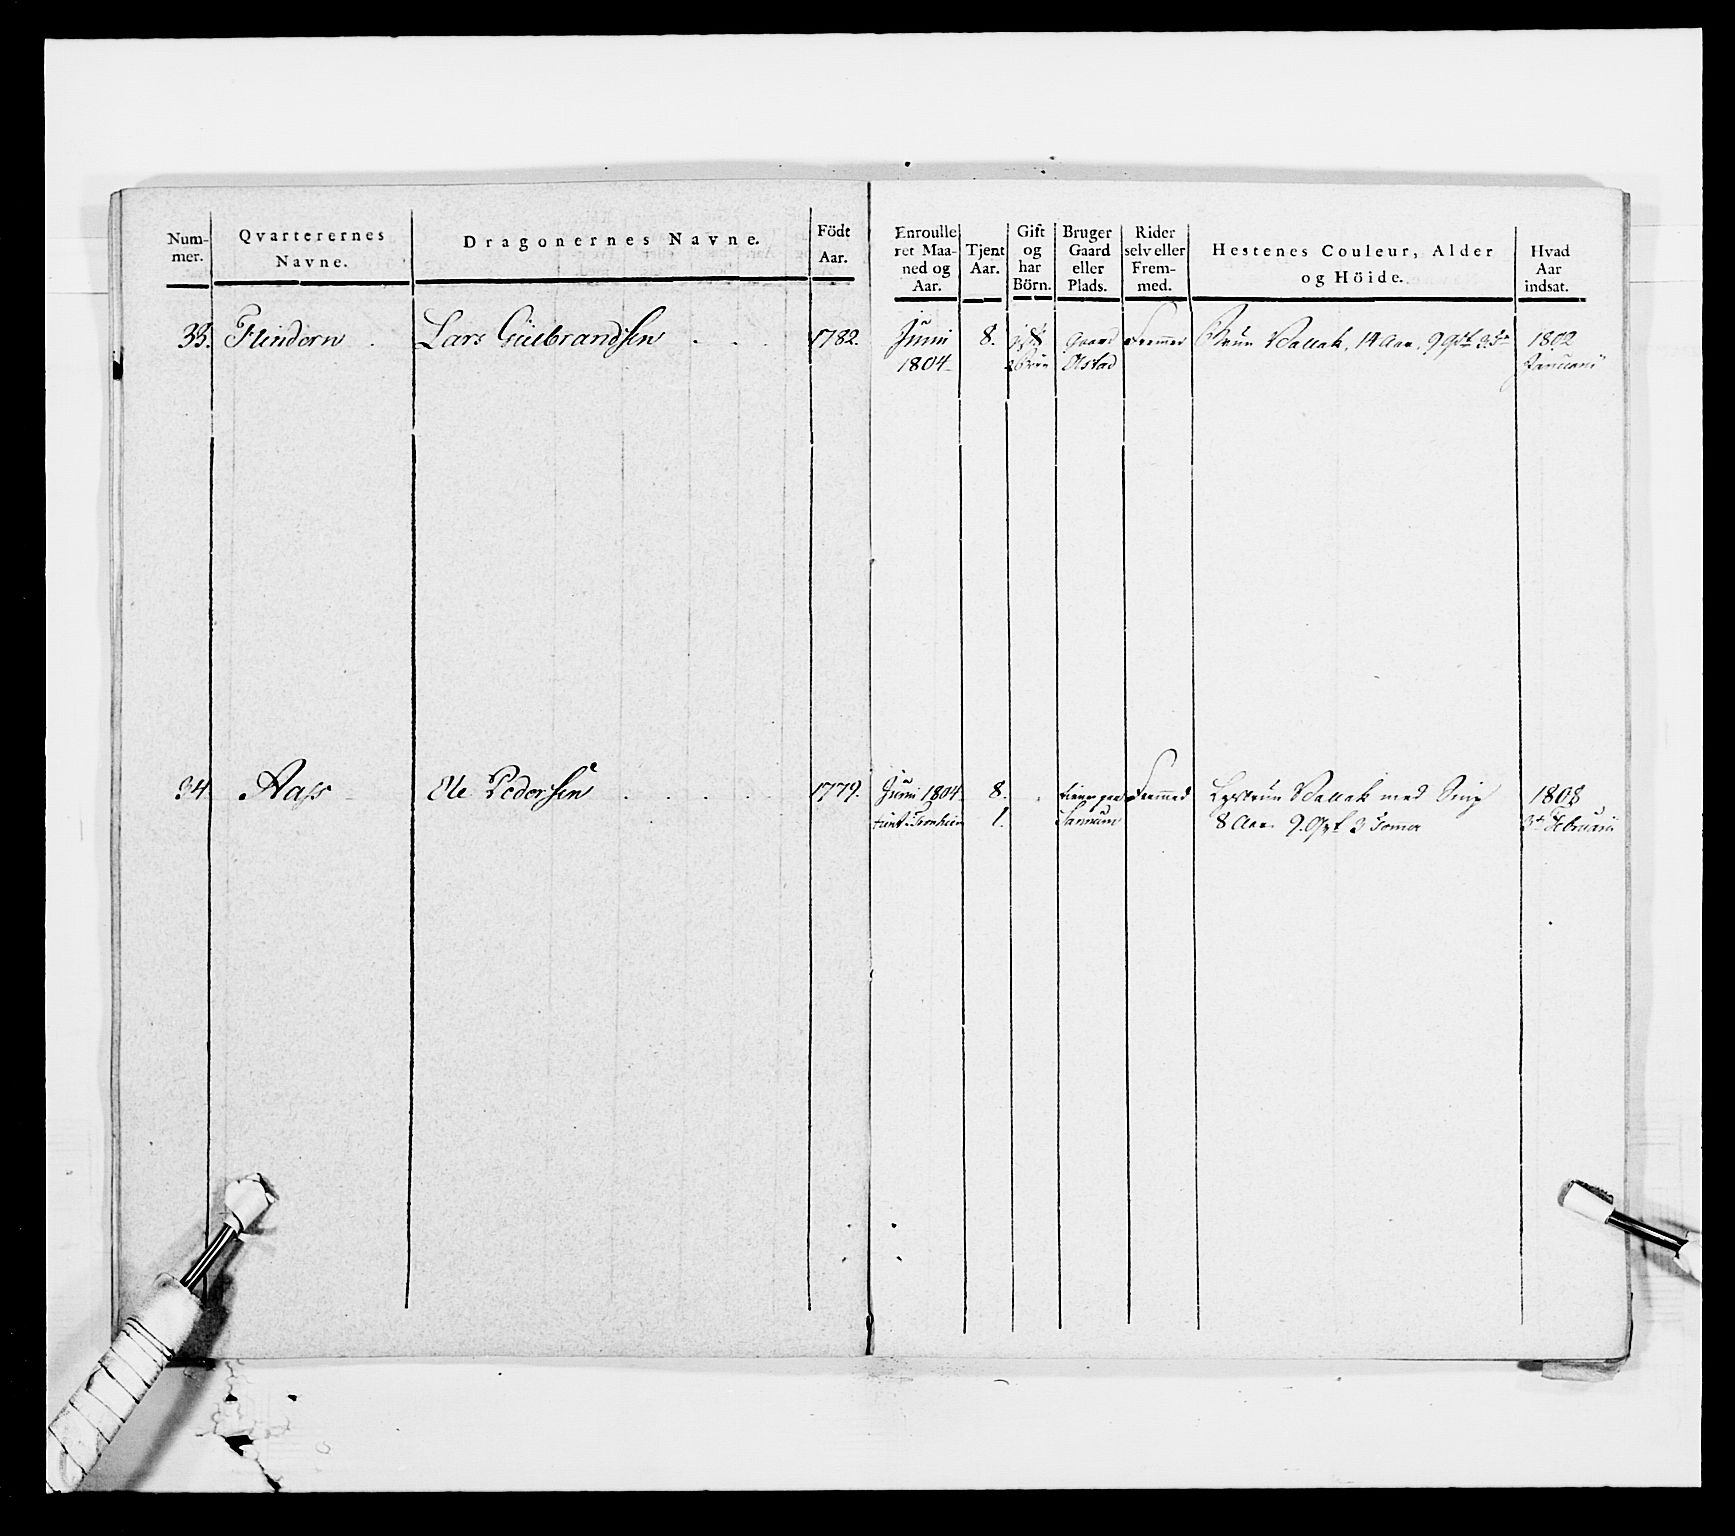 Num-
mer.
Qvarterernes
Navne.
Dragonernes Navne.
Födt
Aar.
Enroulle
ret Maa-
ned og
Aar.
Tjent
Aar.
Gift
og
har
Börn.
Bruger
Gaard
eller
Plads.
Rider
selv eller
Frem-
med.
Hestenes Couleur, Alder
og Höide.
Hvad
Aar
indsat.
33. Flindern . Lars Gulbrandsen . . . 1782. Juni 8. gift Gaard Fremmed Brun Vallak, 14 Aar, 9 Qrt
1804 Olstad Januarii
34. Aass Ole Pedersen . . . . 1779. Juni 1804. 8. tiener paa Fremmed Lysbrun Vallak med
tient Tronheim 1. 8 Aar 9. Qrt 3 Tommer Februarii